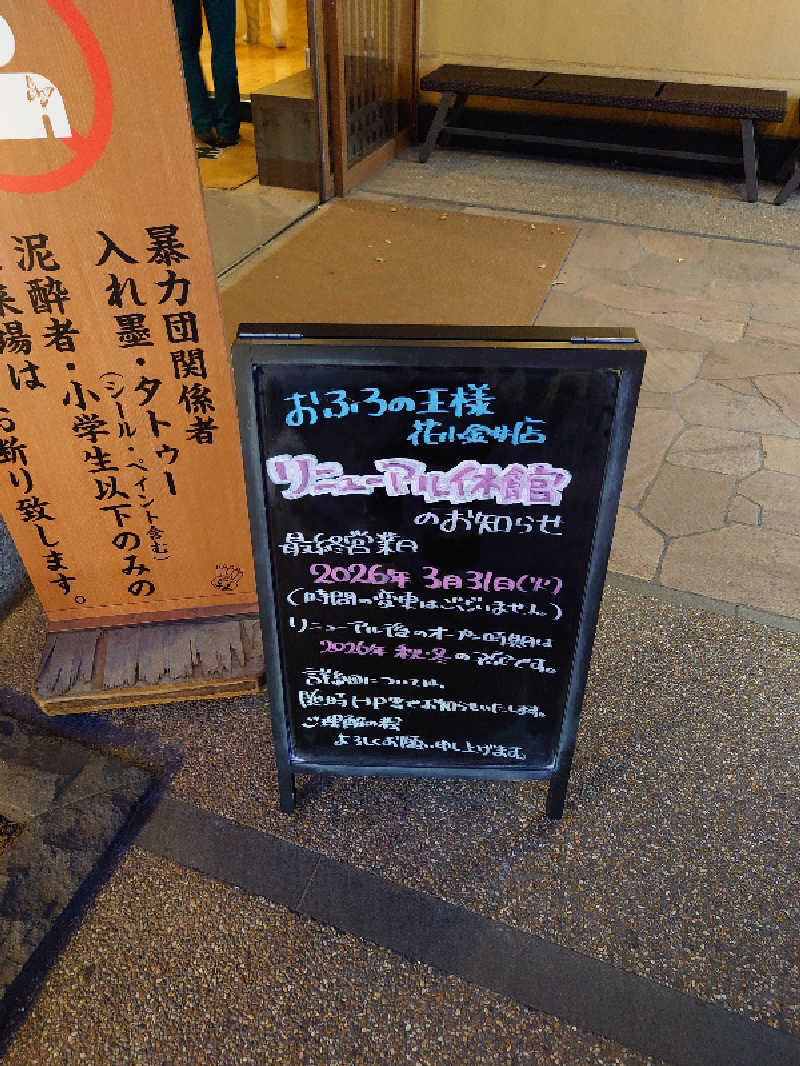 暴力団関係者
入れ墨・タトゥー
(シール・ペイント含む)
泥酔者・小学生以下のみの
来場はお断り致します。
おふろの王様
花小金井店
リニューアル休館
のお知らせ
最終営業日
2026年 3月31日(火)
(時間の変更はございません。)
リニューアル後のオープン時期は
2026年 秋・冬の予定です。
詳細については、
随時HP等でお知らせいたします。
ご理解の程
よろしくお願い申し上げます。